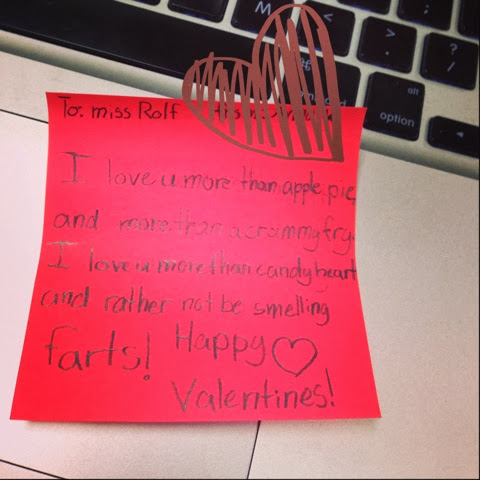 To: miss Rolf
I love u more than apple pie,
and more than a crammy fry.
I love u more than candy heart
and rather not be smelling
farts! Happy ♡
Valentines!
alt
option
command